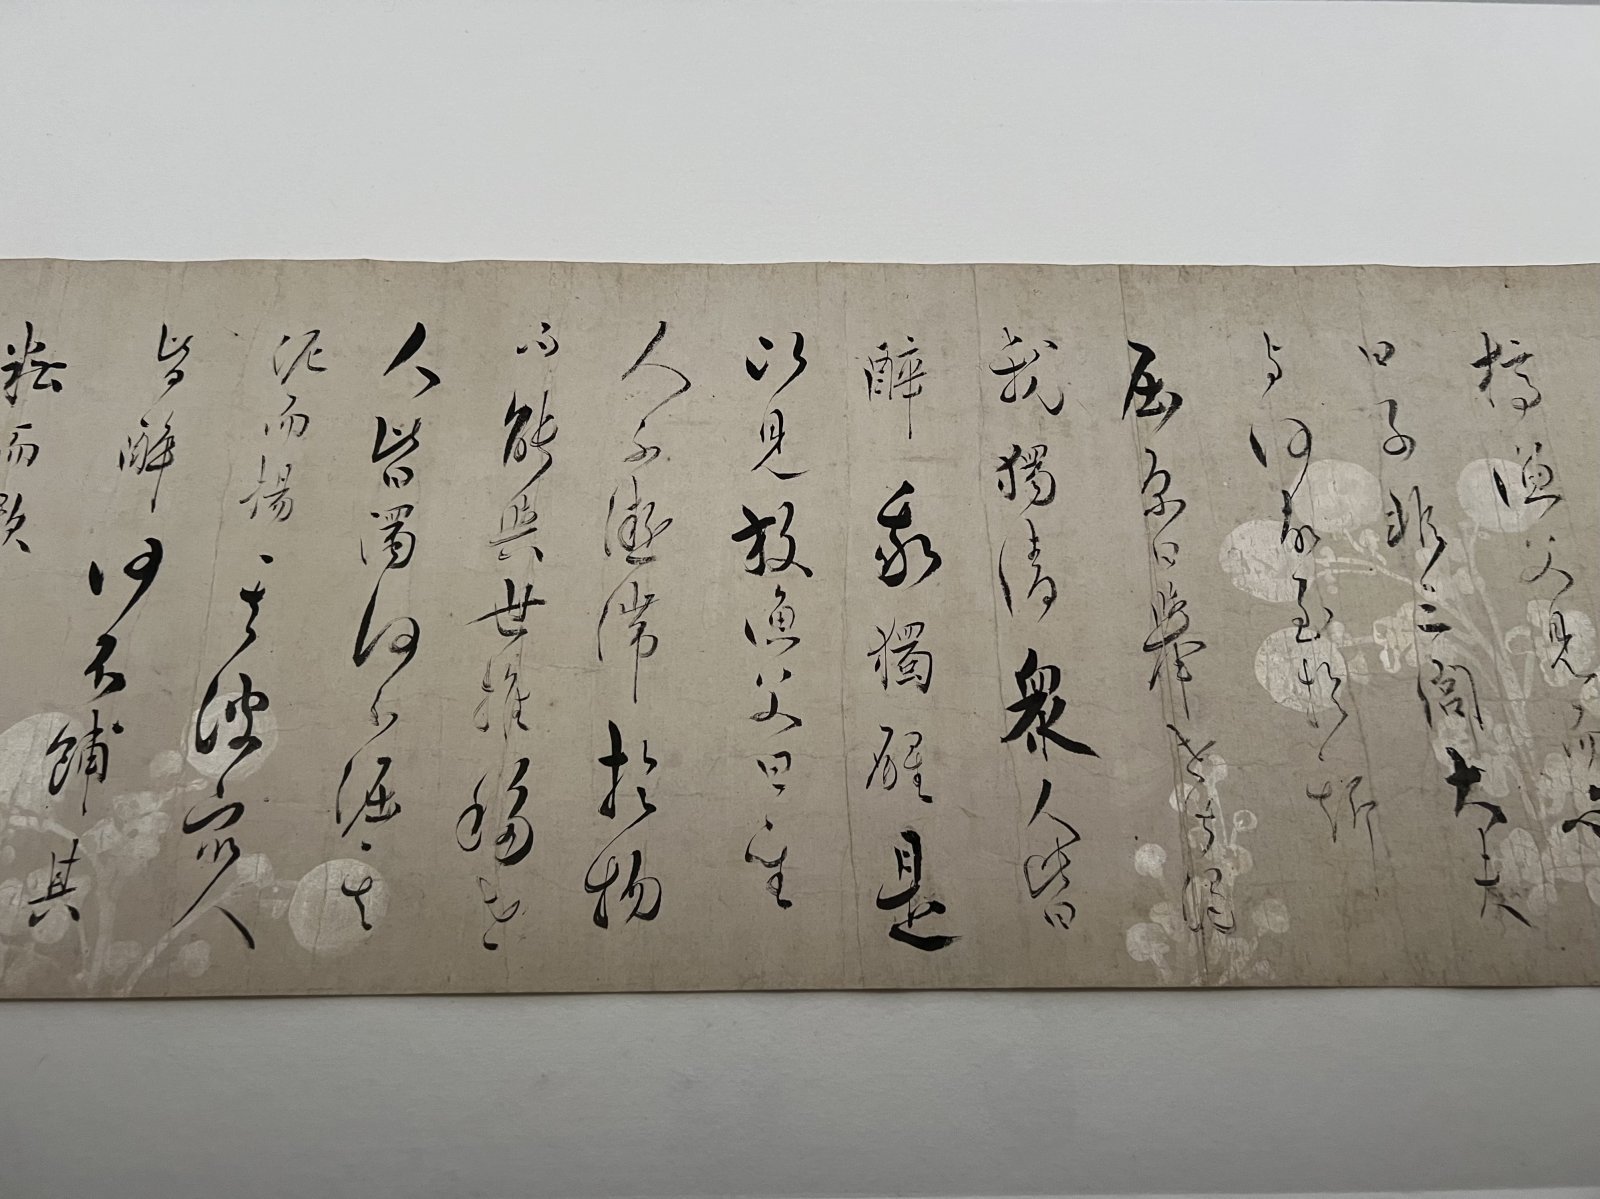 槁漁父見而問之
曰子非三閭大夫
与何故至於斯
屈原曰舉世皆濁
我獨清衆人皆
醉我獨醒是
以見放漁父曰聖
人不凝滯於物
而能與世推移世
人皆濁何不淈其
泥而揚其波衆人
皆醉何不餔其
糟而歠